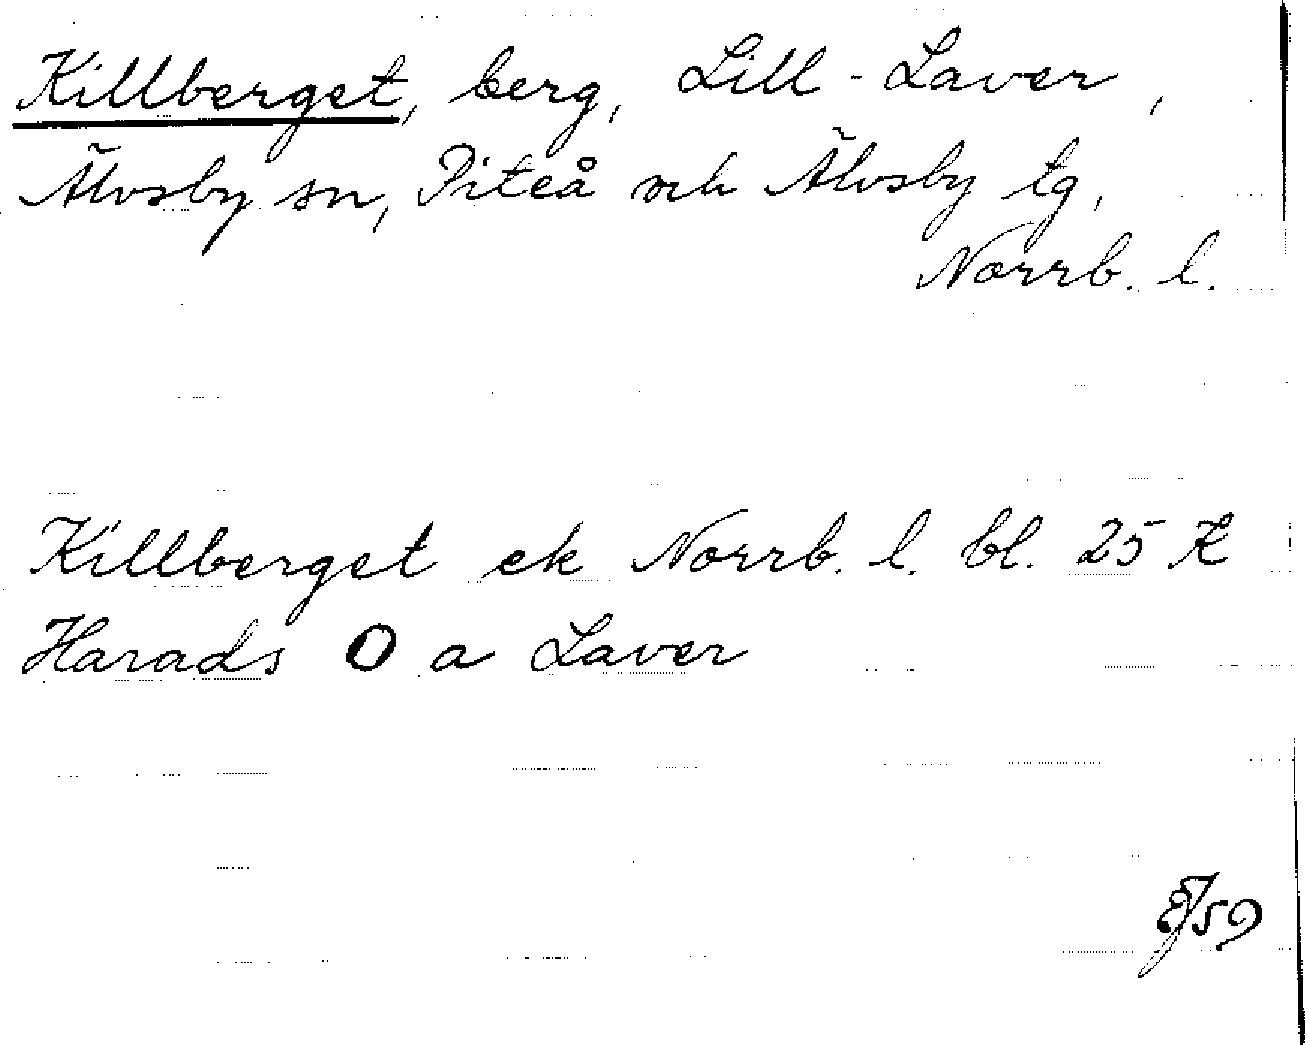 Killberget, berg, Lill-Laver,
Älvsby sn, Piteå och Älvsby tg,
Norrb. l.
Killberget ek Norrb. l. bl. 25 K
Harads O a Laver